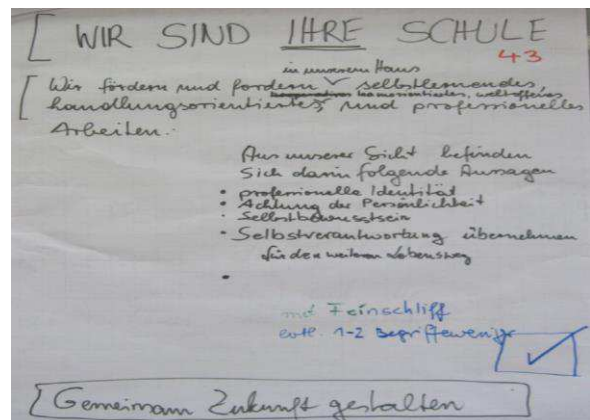 [ WIR SIND IHRE SCHULE
43
in unserem Haus
[ Wir fördern und fordern ✓ selbstlernendes
teamorientiertes, weltoffenes
handlungsorientiertes, und professionelles
Arbeiten.
Aus unserer Sicht befinden
Sich darin folgende Aussagen
• professionelle Identität
• Achtung der Persönlichkeit
• Selbstbewusstsein
• Selbstverantwortung übernehmen
für den weiteren Lebensweg
•
mit Feinschliff
evtl. 1-2 Begriffe weniger
[ Gemeinsam Zukunft gestalten ]